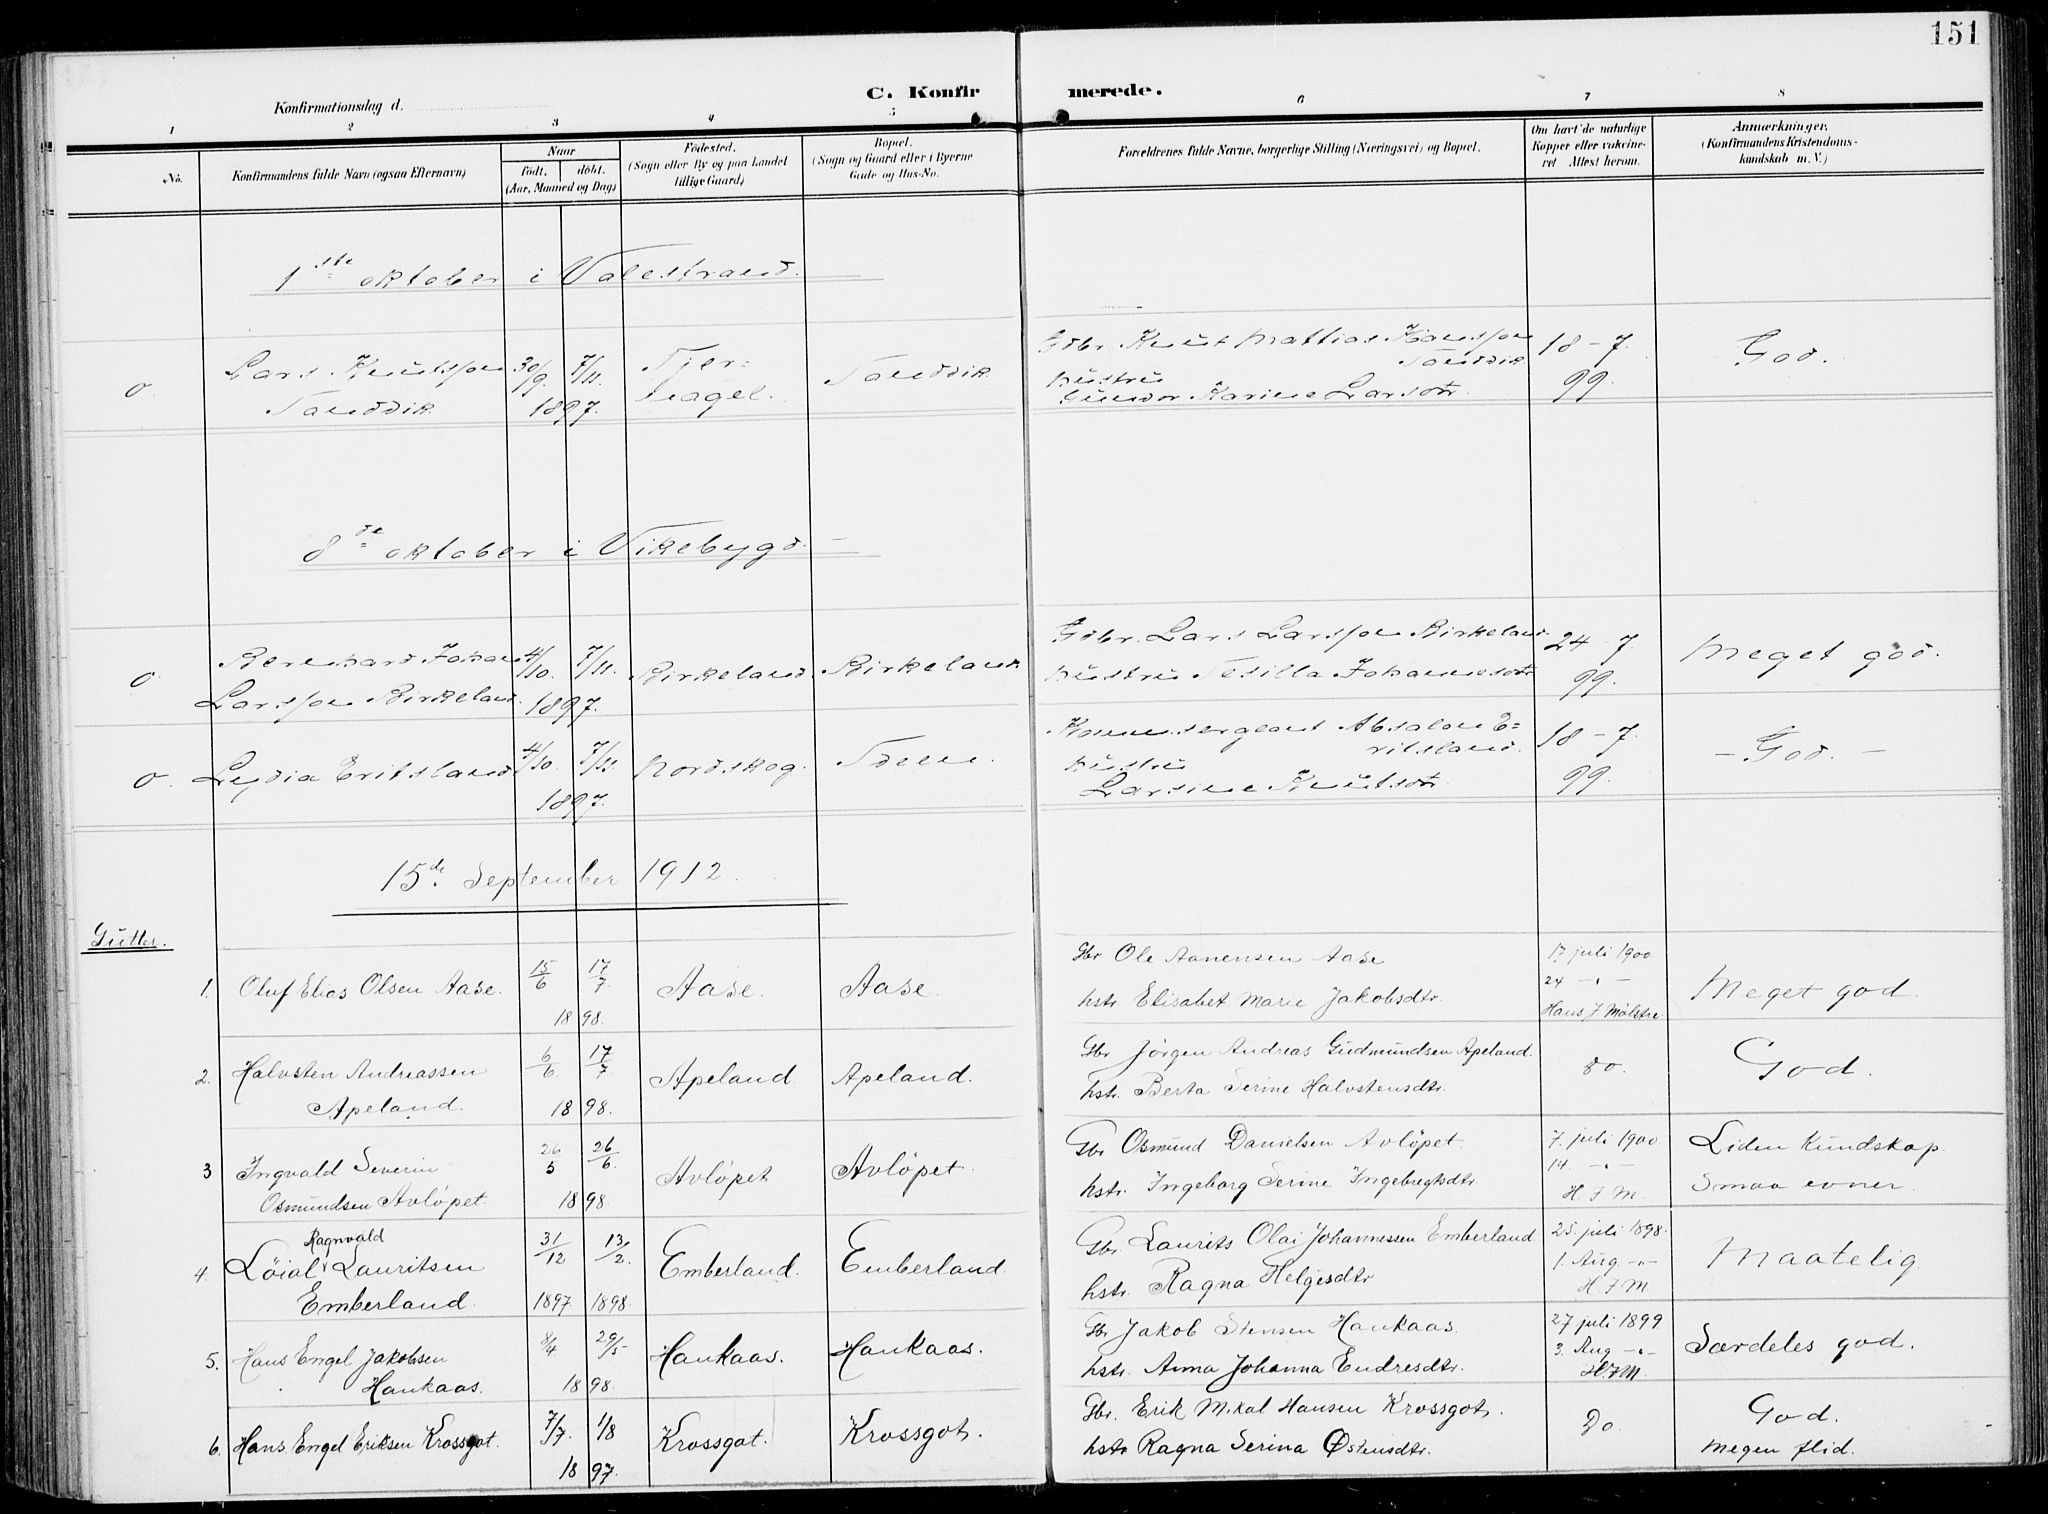 151
C. Konfir merede.
Konfirmationsdag d.
1 2 3 4 5 6 7 8
No.
Konfirmandens fulde Navn (ogsaa Efternavn)
Naar
født. døbt.
(Aar, Maaned og Dag)
Fødested.
(Sogn eller By og paa Landet
tillige Gaard)
Bopæl.
(Sogn og Gaard eller i Byerne
Gade og Hus-No.
Forældrenes fulde Navne, borgerlige Stilling (Næringsvei) og Bopæl.
Om havt de naturlige
Kopper eller vakcine-
ret Attest herom.
Anmærkninger.
(Konfirmandens Kristendoms-
kundskab m. V.)
1ste oktober i Valestrand.
o. Lars Knutsson 30/9. 7/11. Tjer- Tanddik. Gdbr. Knut Mattias Hansson 18-7. God.
Tanddik 1897. nagel. Tanddik
hustru 99.
Gundor Karine Larsdtr.
8de oktober i Vikebygd.
o. Bernhard Johan 4/10. 7/11. Birkeland. Birkeland Gdbr. Lars Larsson Birkeland 24-7. Meget god.
Larsson Birkeland. 1897. hustru Tesilla Johannesdtr 99.
o. Lydia Eritsland 4/10. 7/11. Nordskog. Ølen. Absalon E- 18-7. -God.-
1897. ritsland.
hustru 99.
Larsine Knutsdtr.
15de September 1912.
Gutter.
1. Oluf Elias Olsen Aase. 15/6 17/7 Aase. Aase. Gbr Ole Aanensen Aase 17 juli 1900 Meget god.
1898. hstr. Elisabet Marie Jakobsdtr. 24 -"-
Hans J Mølstre
2. Halvsten Andreassen 6/6. 17/7 Apeland. Apeland. Gbr Jørgen Andreas Gudmundsen Apeland. do. God.
Apeland. 1898. hstr. Berta Serine Halvstensdtr.
3 Ingvald Severin 26/5 26/6. Avløpet Avløpet. Gbr Osmund Danielsen Avløpet. 7. juli 1900 Liden Kundskap.
Osmundsen Avløpet. 1898. hstr. Ingeborg Serine Ingebrigtsdtr 14. -"- Smaa evner.
H. J M.
Ragnvald
4. Løial Lauritsen 31/12 13/2. Emberland. Emberland. Gbr. Laurits Olai Johannessen Emberland 25. juli 1898. Maatelig
Emberland. 1897. 1898. hstr. Ragna Helgesdtr 1. Aug -"-
H. J M.
5. Hans Engel Jakobsen 8/4 29/5 Haukaas. Haukaas. Gbr Jakob Stensen Haukaas. 27 juli 1899. Særdeles god.
Haukaas. 1898. hstr. Anna Johanna Endresdtr. 3. Aug -"-
H.J M.
6. Hans Engel Eriksen Krossgot. 7/7. 1/8 Krossgot. Krossgot. Gbr. Erik Mikal Hansen Krossgot. Do. God.
1897. hstr Ragna Serina Østensdtr. Megen flid.